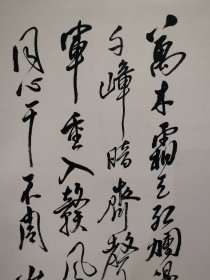 萬木霜天红爛
千嶂暗齊聲
軍重入赣风
同心干不周